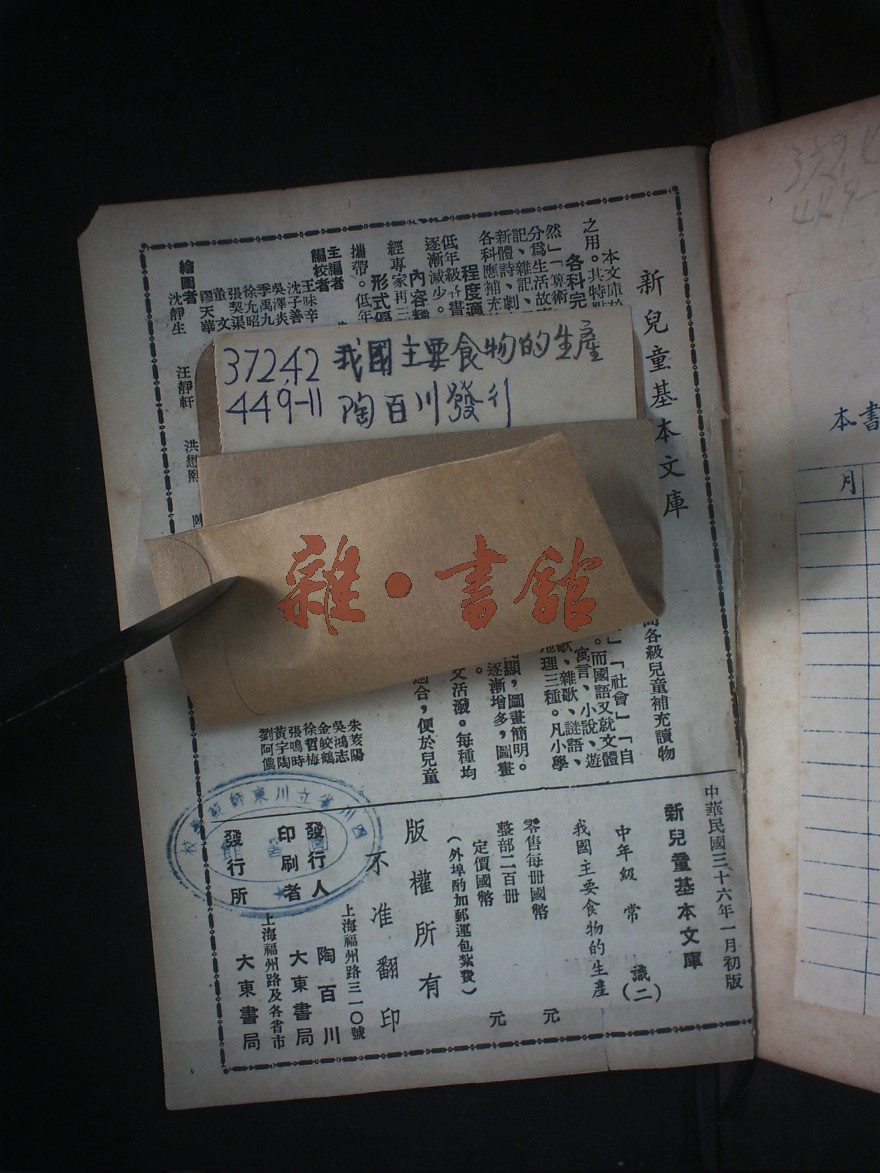 新兒童基本文庫
本文庫
高各級兒童補充讀物
之用。其特點
各科完
「社會」「自
然」「算術
。而國語又就文體
分爲生活故
寓言、小說、遊
記、雜記、劇
歌、雜歌、謎語、
新體詩、
地理三種。凡小學
各科應補充
程度適
顯，圖畫簡明。
低年級
逐漸增多，圖畫
逐漸減少。
內容精
文活潑。每種均
經專家再三
形式優
適合，便於兒童
攜帶。低年
主編者
編校者
王味辛
沈子善
吳澤炎
季禹九
徐允昭
張契渠
董文
繆天華
朱菱陽
吳鴻志
金皎鶴
徐哲梅
張鳴時
黃宇陶
劉阿儂
繪圖者
沈靜生
汪靜軒
洪想熙
陳
372.42 我國主要食物的生產
449-11 陶百川發行
雜·書館
中華民國三十六年一月初版
新兒童基本文庫
中年級 常識(二)
我國主要食物的生產
零售每冊國幣 元
整部二百冊
定價國幣 元
(外埠酌加郵運包紮費)
版權所有
不准翻印
上海福州路三一〇號
發行人 陶百川
印刷者 大東書局
上海福州路及各省市
發行所 大東書局
372.4
449-
本書
月